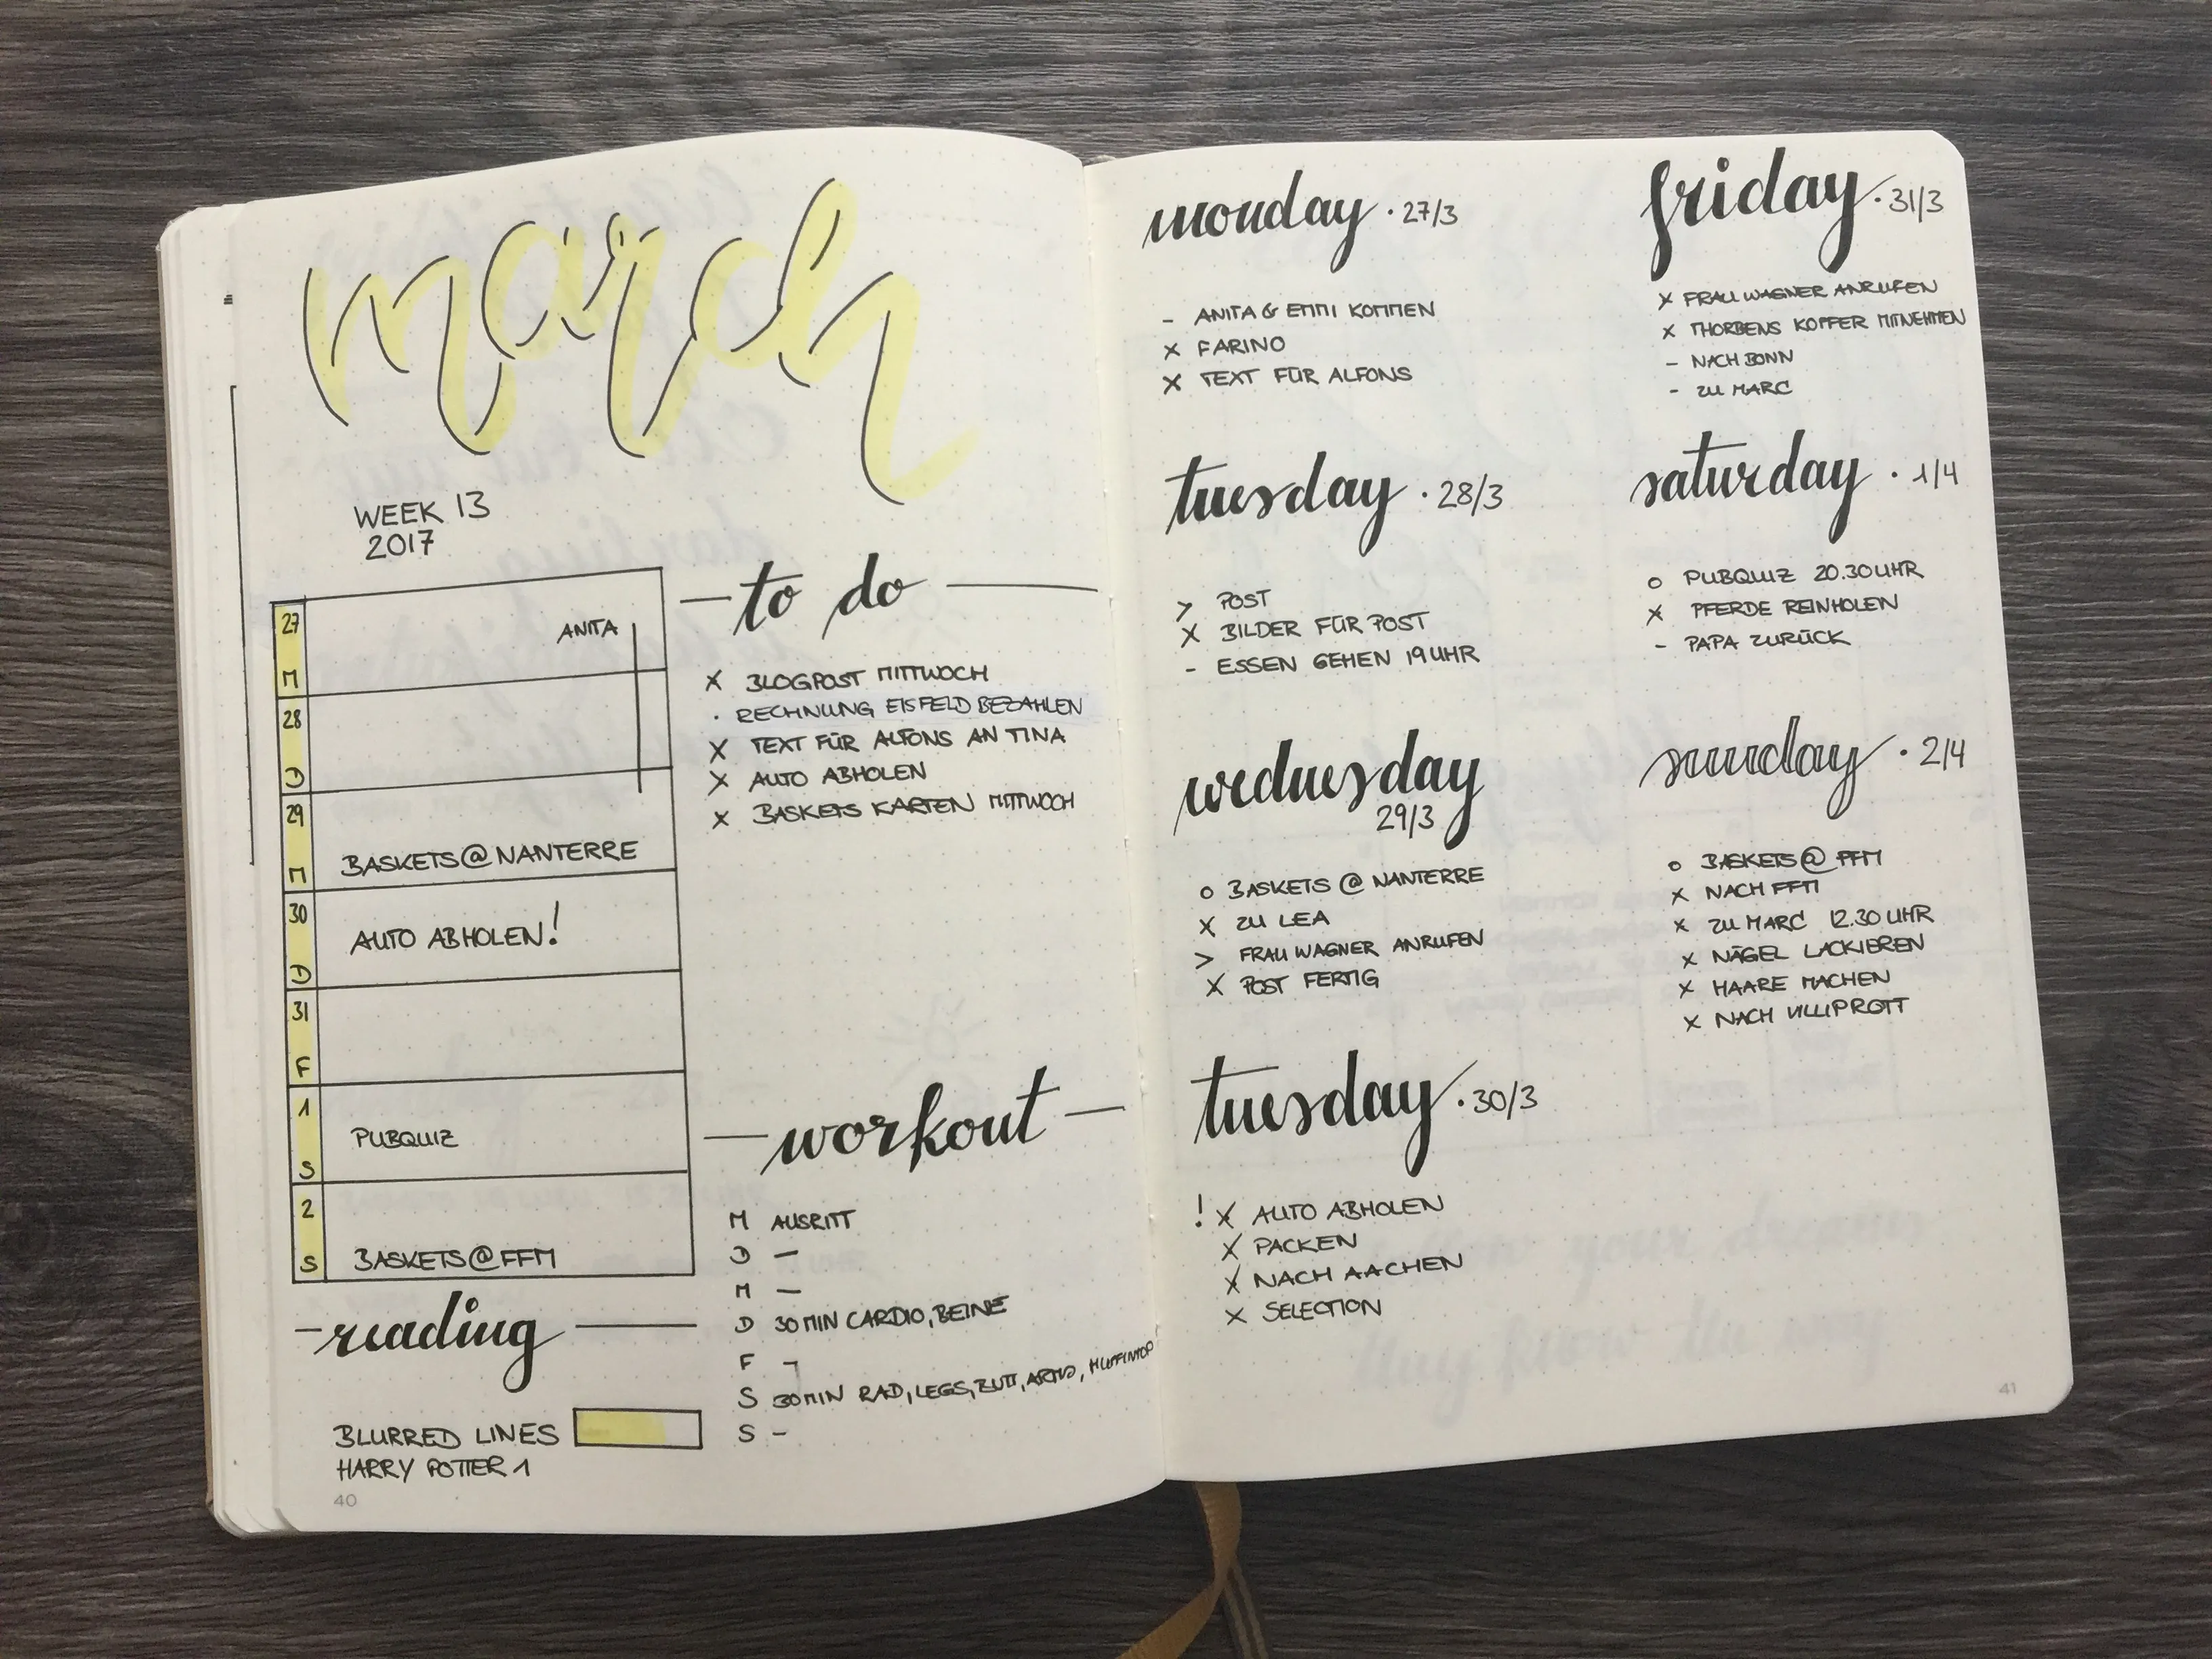 march
WEEK 13
2017
27
M
ANITA
28
D
29
M
BASKETS@NANTERRE
30
D
AUTO ABHOLEN!
31
F
1
S
PUBQUIZ
2
S
BASKETS@FFM
to do
X BLOGPOST MITTWOCH
· RECHNUNG EISFELD BEZAHLEN
X TEXT FÜR ALFONS AN TINA
X AUTO ABHOLEN
X BASKETS KARTEN MITTWOCH
workout
M AUSRITT
D —
M —
D 30 MIN CARDIO, BEINE
F –
S 30 MIN RAD, LEGS, BUTT, ARMS, MUFFINTOP
S –
reading
BLURRED LINES
HARRY POTTER 1
40
monday · 27/3
– ANITA & EMMI KOMMEN
X FARINO
X TEXT FÜR ALFONS
tuesday · 28/3
> POST
X BILDER FÜR POST
– ESSEN GEHEN 19 UHR
wednesday
29/3
o BASKETS @ NANTERRE
X ZU LEA
> FRAU WAGNER ANRUFEN
X POST FERTIG
tuesday · 30/3
! X AUTO ABHOLEN
X PACKEN
X NACH AACHEN
X SELECTION
friday · 31/3
X FRAU WAGNER ANRUFEN
X THORBENS KOFFER MITNEHMEN
– NACH BONN
– ZU MARC
saturday · 1/4
o PUBQUIZ 20.30 UHR
X PFERDE REINHOLEN
– PAPA ZURÜCK
sunday · 2/4
o BASKETS@FFM
X NACH FFM
X ZU MARC 12.30 UHR
X NÄGEL LACKIEREN
X HAARE MACHEN
X NACH VILLIPROTT
41